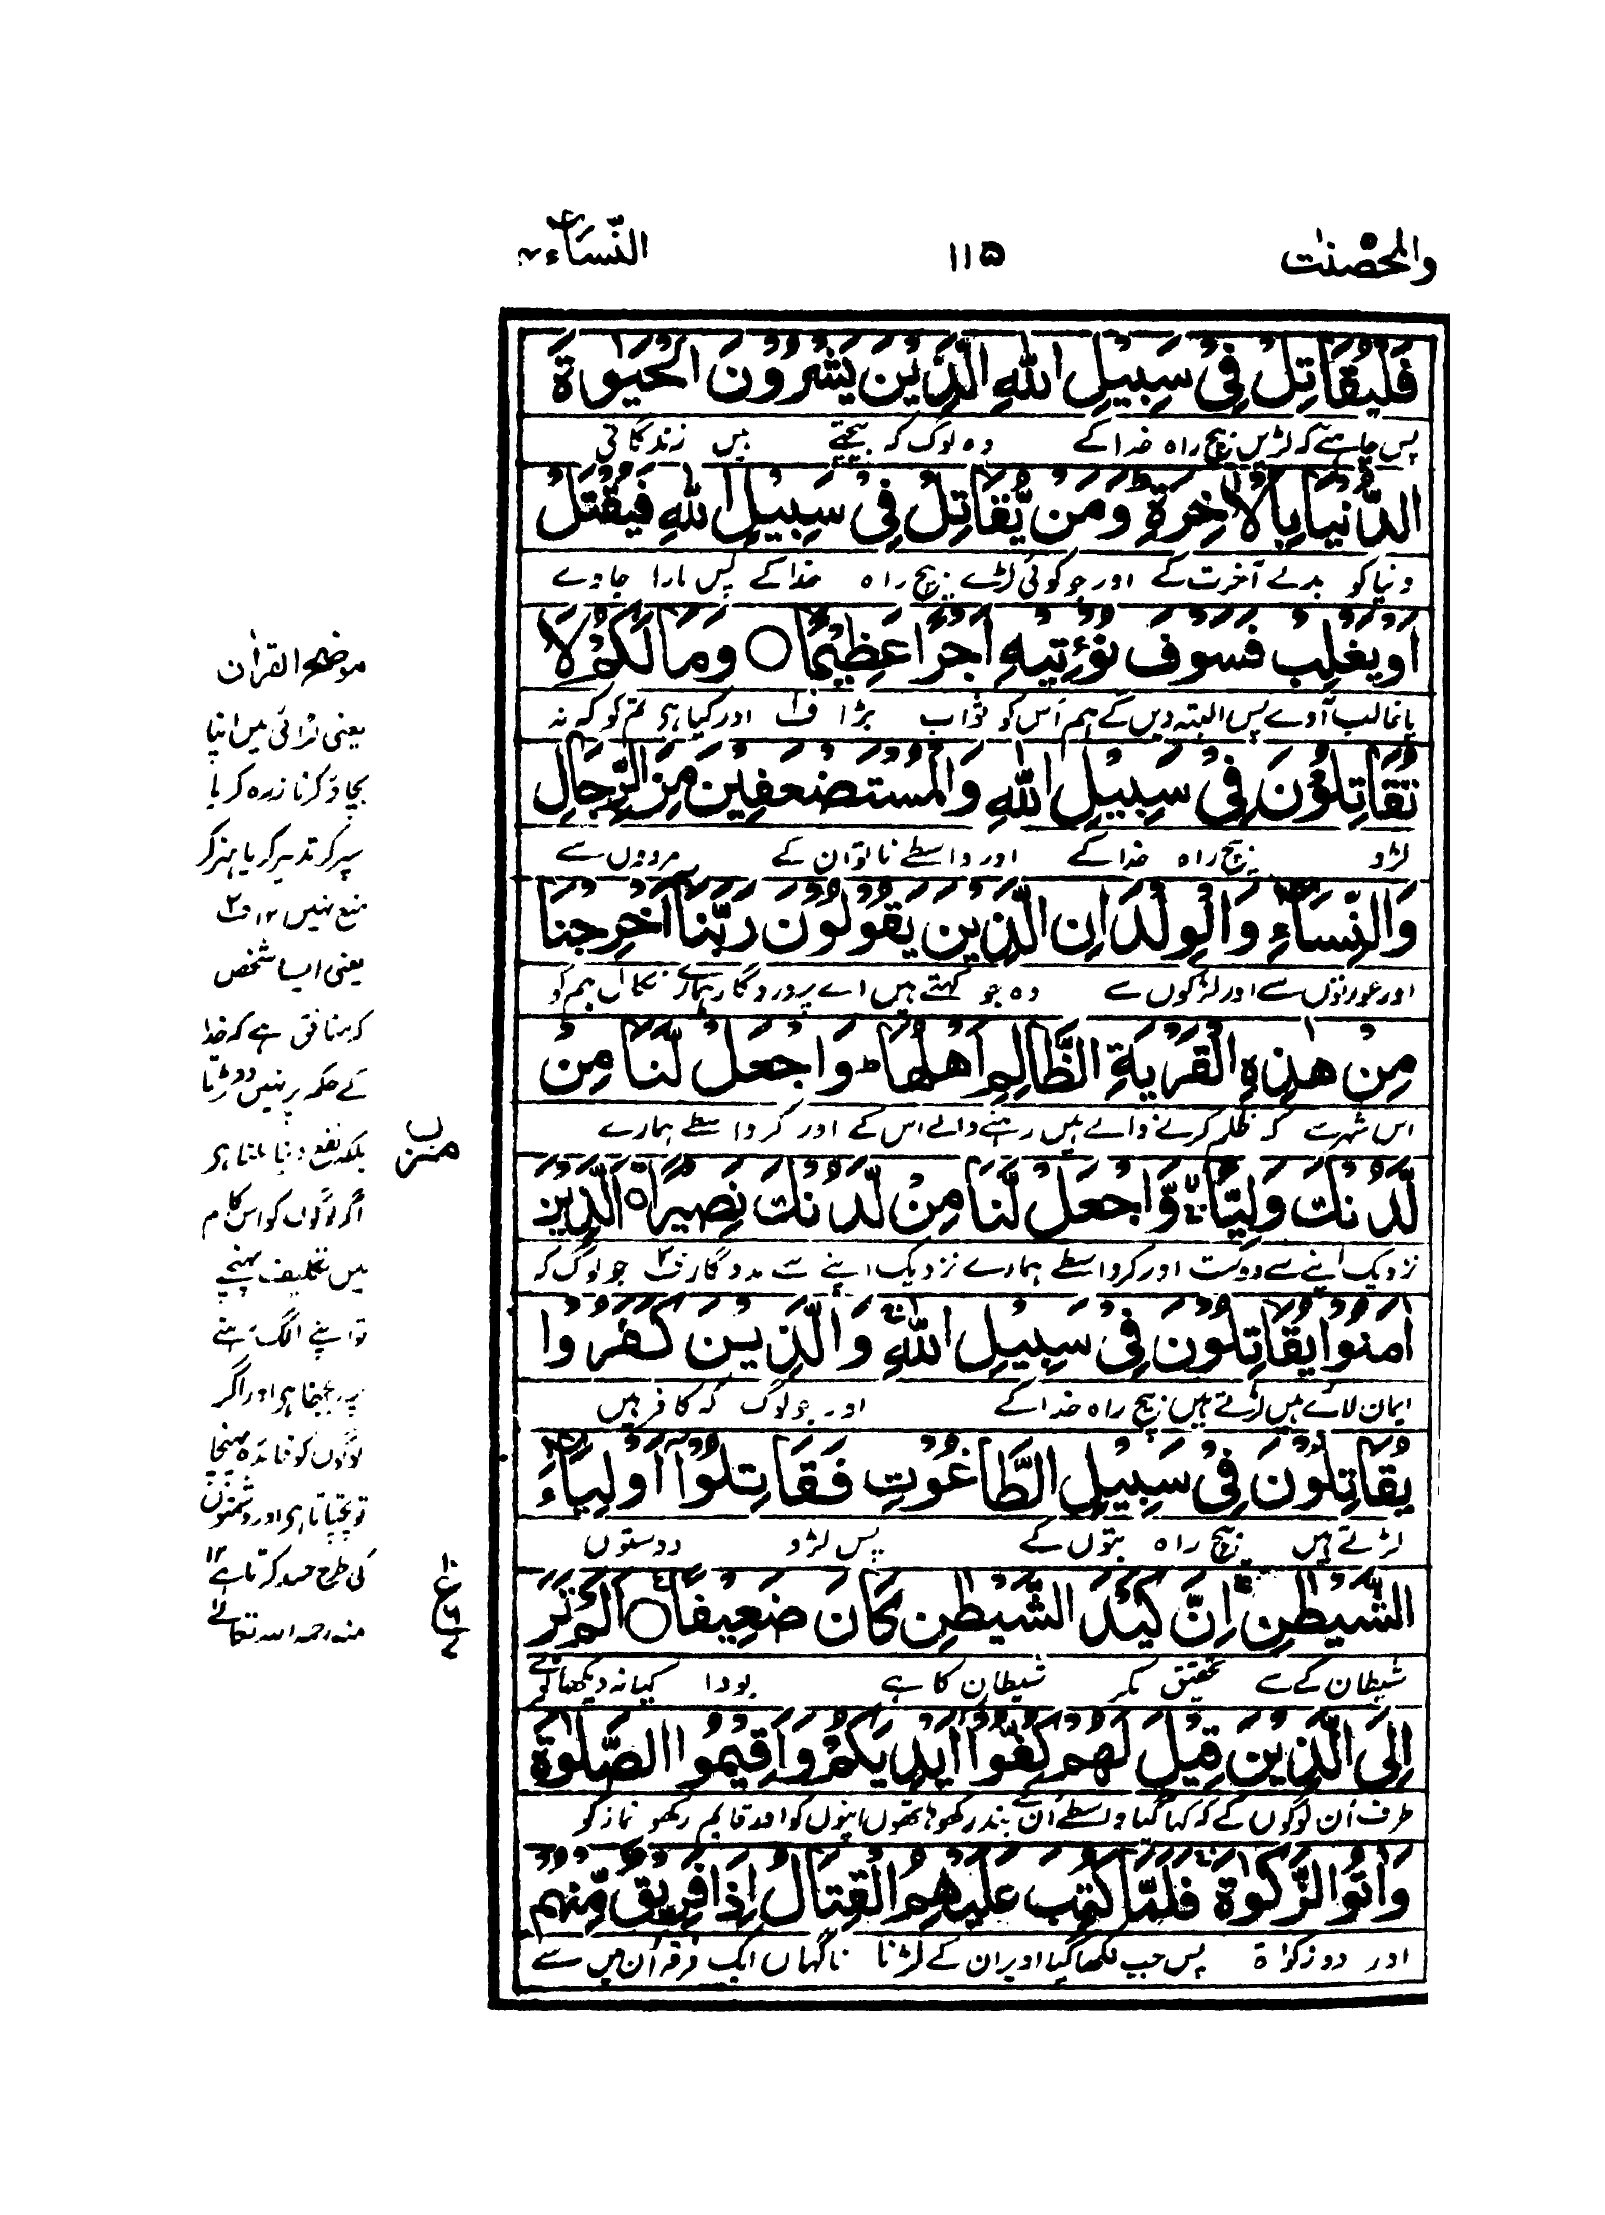 والمحصنٰت
۱۱۵
النّسآء۴
فَلْيُقَاتِلْ فِيْ سَبِيْلِ اللّٰهِ الَّذِيْنَ يَشْرُوْنَ الْحَيٰوةَ
پس چاہیئے کہ لڑیں بیچ راہ خدا کے وہ لوگ کہ بیچتے ہیں زندگانی
الدُّنْيَا بِالْاٰخِرَةِ ؕ وَمَنْ يُّقَاتِلْ فِيْ سَبِيْلِ اللّٰهِ فَيُقْتَلْ
دنیا کو بدلے آخرت کے اور جو کوئی لڑے بیچ راہ خدا کے پس مارا جاوے
اَوْ يَغْلِبْ فَسَوْفَ نُؤْتِيْهِ اَجْرًا عَظِيْمًا ○ وَمَا لَكُمْ لَا
یا غالب آوے پس البتہ دیں گے ہم اُس کو ثواب بڑا ف۱ اور کیا ہی تم کو کہ نہ
تُقَاتِلُوْنَ فِيْ سَبِيْلِ اللّٰهِ وَالْمُسْتَضْعَفِيْنَ مِنَ الرِّجَالِ
لڑو بیچ راہ خدا کے اور واسطے ناتوان کے مردوں سے
وَالنِّسَآءِ وَالْوِلْدَانِ الَّذِيْنَ يَقُوْلُوْنَ رَبَّنَآ اَخْرِجْنَا
اور عورتوں سے اور لڑکوں سے وہ جو کہتے ہیں اے پروردگار ہمارے نکال ہم کو
مِنْ هٰذِهِ الْقَرْيَةِ الظَّالِمِ اَهْلُهَا ۚ وَاجْعَلْ لَّنَا مِنْ
اس شہر سے کہ ظلم کرنے والے ہیں رہنے والے اس کے اور کر واسطے ہمارے
لَّدُنْكَ وَلِيًّا ۙ وَّاجْعَلْ لَّنَا مِنْ لَّدُنْكَ نَصِيْرًا ○ اَلَّذِيْنَ
نزدیک اپنے سے دوست اور کر واسطے ہمارے نزدیک اپنے سے مددگار ف۲ جو لوگ کہ
اٰمَنُوْا يُقَاتِلُوْنَ فِيْ سَبِيْلِ اللّٰهِ ۚ وَالَّذِيْنَ كَفَرُوْا
ایمان لائے ہیں لڑتے ہیں بیچ راہ خدا کے اور جو لوگ کہ کافر ہیں
يُقَاتِلُوْنَ فِيْ سَبِيْلِ الطَّاغُوْتِ فَقَاتِلُوْٓا اَوْلِيَآءَ
لڑتے ہیں بیچ راہ بتوں کے پس لڑو دوستوں
الشَّيْطٰنِ ۚ اِنَّ كَيْدَ الشَّيْطٰنِ كَانَ ضَعِيْفًا ○ اَلَمْ تَرَ
شیطان کے سے تحقیق مکر شیطان کا ہے بودا کیا نہ دیکھا تو نے
اِلَى الَّذِيْنَ قِيْلَ لَهُمْ كُفُّوْٓا اَيْدِيَكُمْ وَاَقِيْمُوا الصَّلٰوةَ
طرف اُن لوگوں کے کہ کہا گیا واسطے اُن کے بند رکھو ہاتھوں اپنوں کو اور قایم رکھو نماز کو
وَاٰتُوا الزَّكٰوةَ ۚ فَلَمَّا كُتِبَ عَلَيْهِمُ الْقِتَالُ اِذَا فَرِيْقٌ مِّنْهُمْ
اور دو زکوٰۃ پس جب لکھا گیا اوپر ان کے لڑنا ناگہاں ایک فرقہ اُن میں سے
موضح القرآن
یعنی لڑائی میں اپنا
بچاؤ کرنا زرہ کر یا
سپر کر تدبیر کر یا ہنر کر
منع نہیں ۱۲ ف۲
یعنی ایسا شخص
کہ منافق ہے کہ خدا
کے حکم پر نہیں دوڑتا
بلکہ نفع دنیا تکتا ہی
اگر لوگوں کو اس کام
میں تکلیف پہنچے
تو اپنے الگ رہنے
پر ریجھتا ہی اور اگر
لوگوں کو فائدہ پہنچا
تو پچھتاتا ہی اور دشمنوں
کی طرح حسد کرتا ہے ۱۲
منہ رحمہ اللہ تعالےٰ
ع